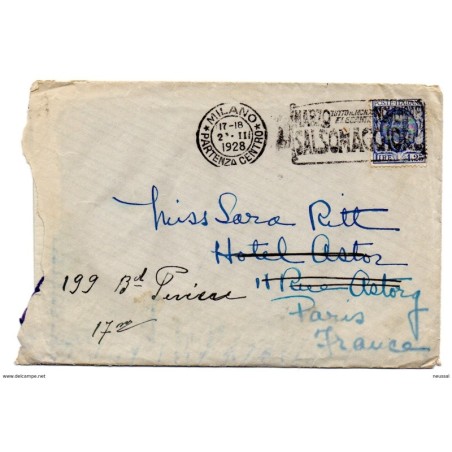 MILANO
17-18
2 . III
1928
PARTENZA CENTRO
MARZO TUTTO
SALSOMAGGIORE
POSTE ITALIANE
LIRE 1,25
Miss Sara Ritt
Hotel Astor
11 Rue Astorg
199 Bd
17me
Paris
France
www.delcampe.net
neussal